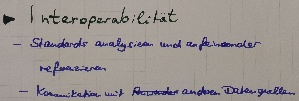 ► Interoperabilität
- Standards analysieren und aufeinander
referenzieren
- Kommunikation mit anderen Datenquellen